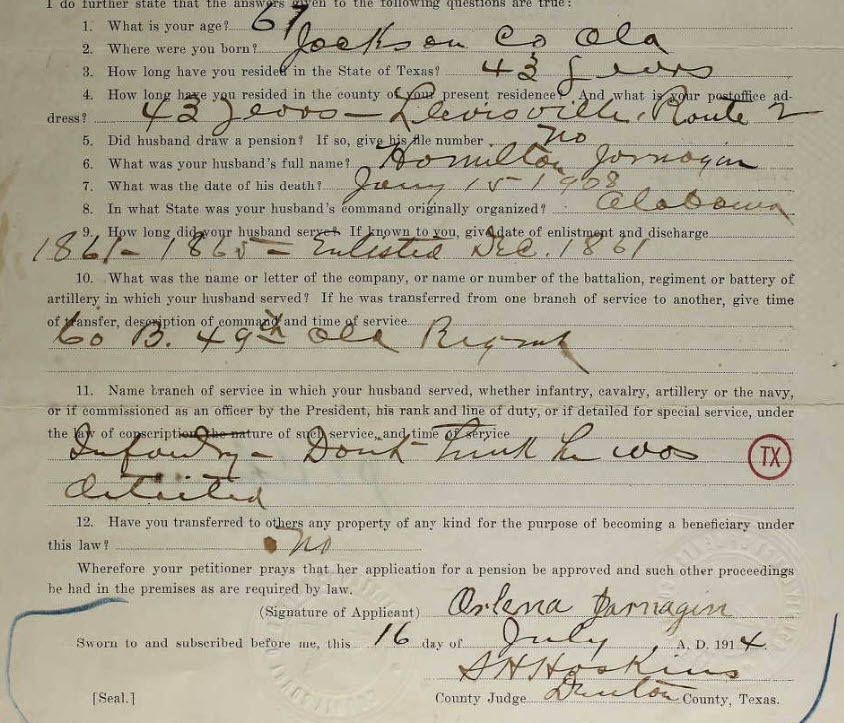 I do further state that the answers given to the following questions are true:
1. What is your age? 67
2. Where were you born? Jackson Co Ala
3. How long have you resided in the State of Texas? 43 years
4. How long have you resided in the county of your present residence? And what is your postoffice ad-
dress? 43 years - Lewisville, Route 2
5. Did husband draw a pension? If so, give his file number. no
6. What was your husband's full name? Hamilton Jarnagin
7. What was the date of his death? Jany 15 - 1908
8. In what State was your husband's command originally organized? Alabama
9. How long did your husband serve? If known to you, give date of enlistment and discharge
1861 - 1865 - Enlested Dec. 1861
10. What was the name or letter of the company, or name or number of the battalion, regiment or battery of
artillery in which your husband served? If he was transferred from one branch of service to another, give time
of transfer, description of command and time of service
Co B. 49th Ala Regmt
11. Name branch of service in which your husband served, whether infantry, cavalry, artillery or the navy,
or if commissioned as an officer by the President, his rank and line of duty, or if detailed for special service, under
the law of conscription the nature of such service, and time of service
Infantry - Dont think he was
detailed
TX
12. Have you transferred to others any property of any kind for the purpose of becoming a beneficiary under
this law? no
Wherefore your petitioner prays that her application for a pension be approved and such other proceedings
be had in the premises as are required by law.
(Signature of Applicant) Orlena Jarnagin
Sworn to and subscribed before me, this 16 day of July A. D. 1914.
S H Hoskins
[Seal.] County Judge Denton County, Texas.